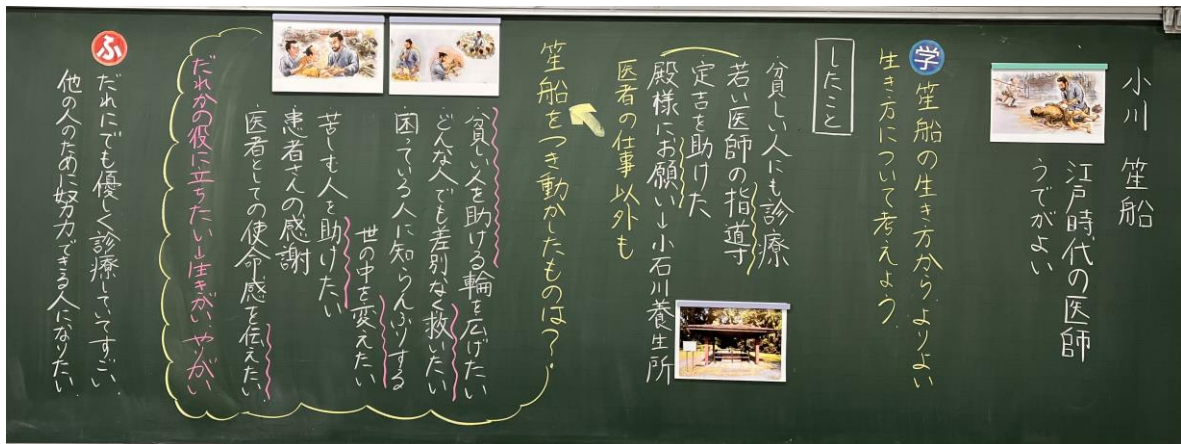 小川 笙船
江戸時代の医師
うでがよい
学 笙船の生き方から、よりよい
生き方について考えよう。
したこと
貧しい人にも診療
若い医師の指導
定吉を助けた
殿様にお願い→小石川養生所
医者の仕事以外も
笙船をつき動かしたものは？
・貧しい人を助ける輪を広げたい
・どんな人でも差別なく救いたい
・困っている人に知らんぷりする
世の中を変えたい
・苦しむ人を助けたい
・患者さんの感謝
・医者としての使命感を伝えたい
だれかの役に立ちたい→生きがい、やりがい
ふ だれにでも優しく診療していてすごい。
他の人のために努力できる人になりたい。